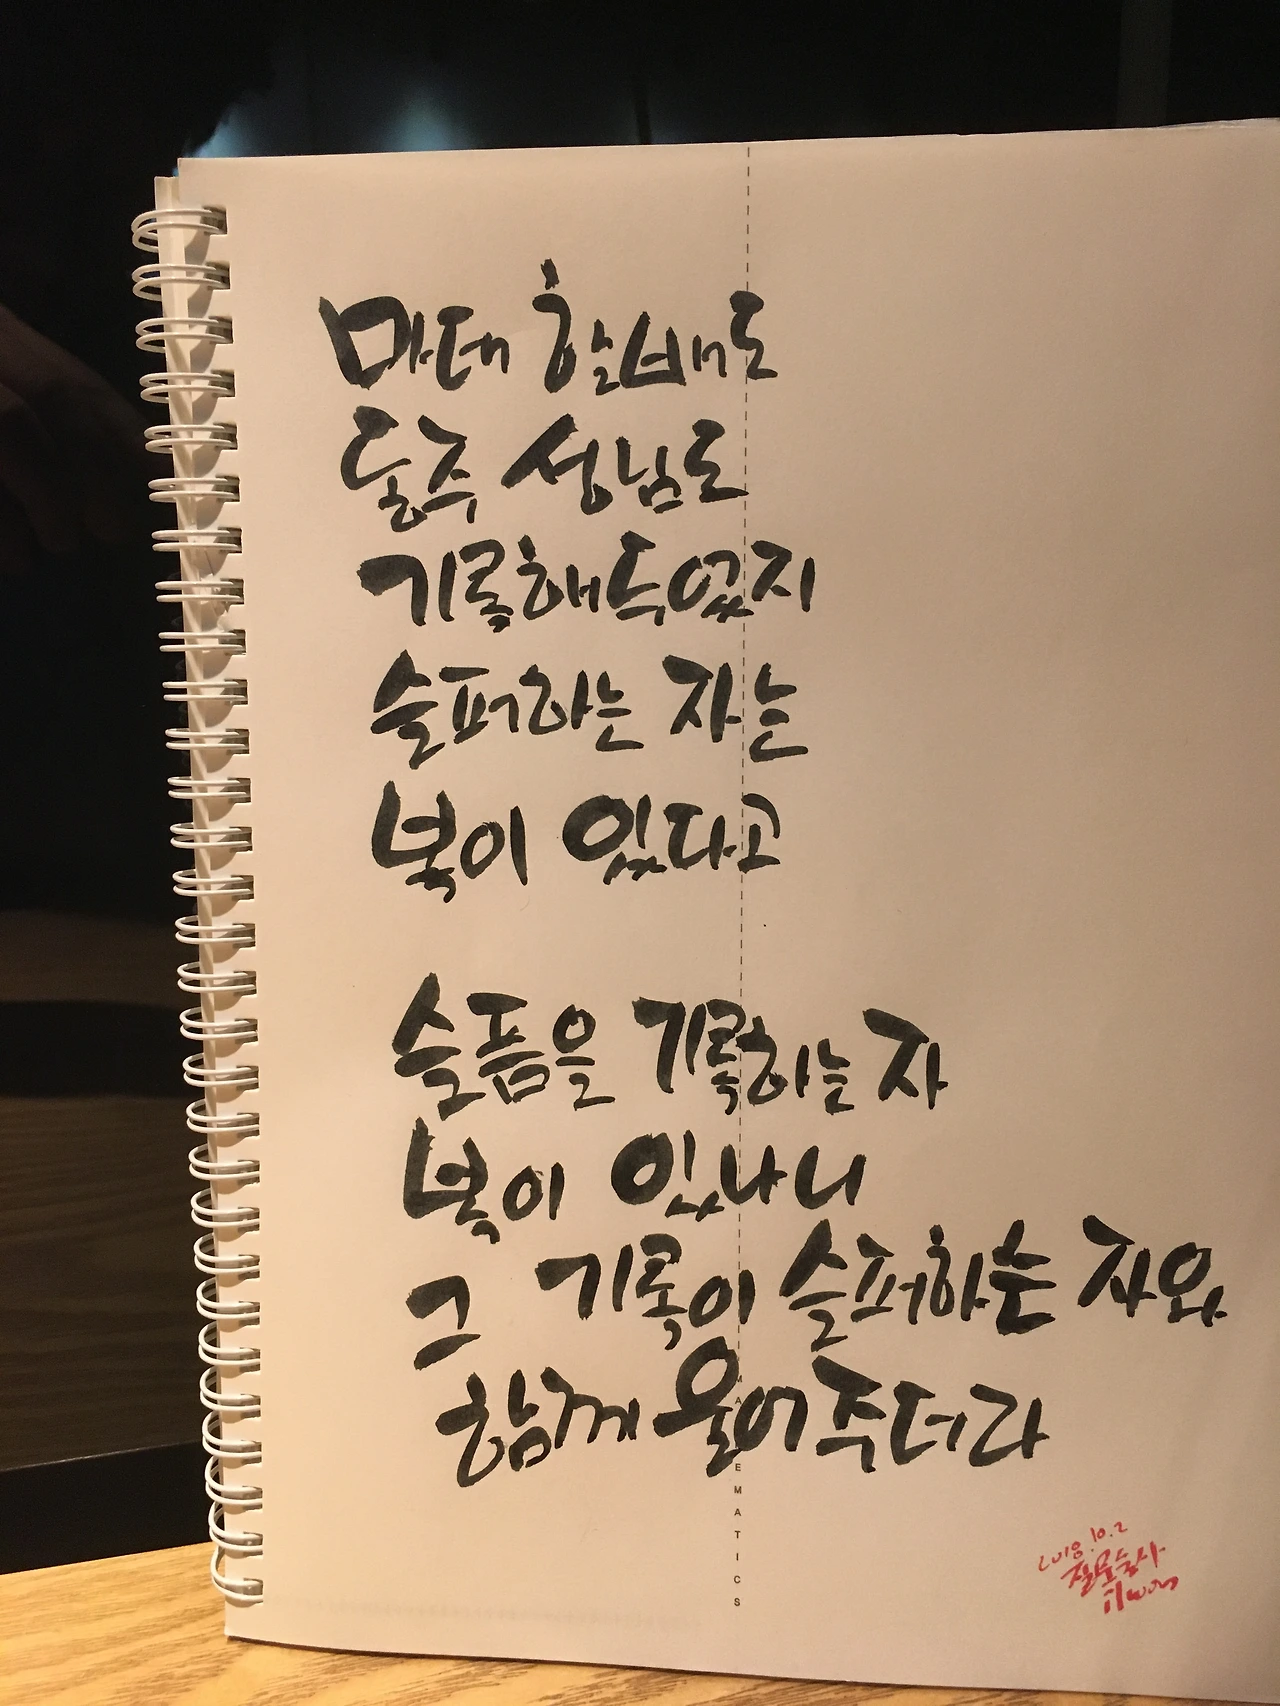 마태 할배도
동주 성님도
기록해두었지
슬퍼하는 자는
복이 있다고
슬픔을 기록하는 자
복이 있나니
그 기록이 슬퍼하는 자와
함께 울어주더라
MATHEMATICS
2018.10.2
질문술사